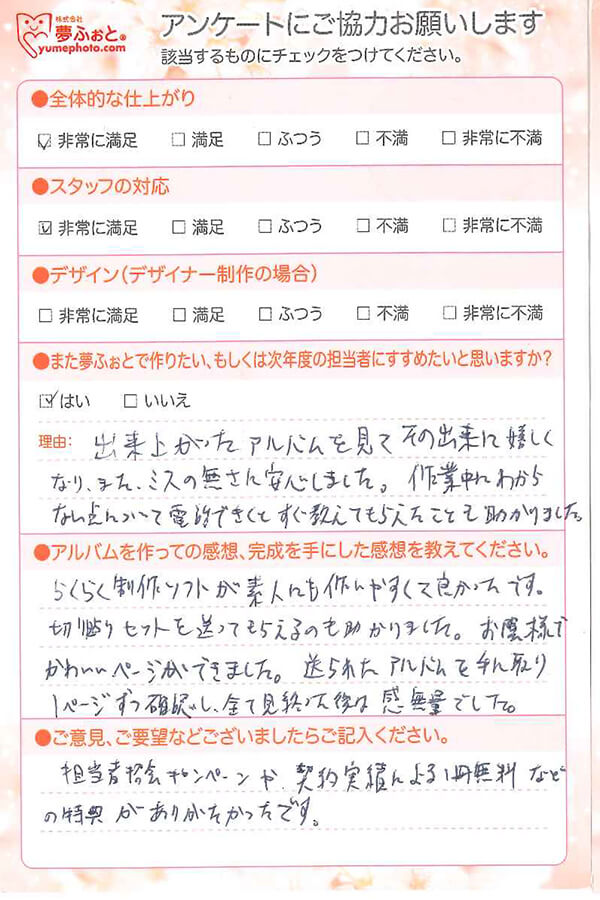 株式会社
夢ふぉと®
yumephoto.com
アンケートにご協力お願いします
該当するものにチェックをつけてください。
●全体的な仕上がり
☑ 非常に満足 □ 満足 □ ふつう □ 不満 □ 非常に不満
●スタッフの対応
☑ 非常に満足 □ 満足 □ ふつう □ 不満 □ 非常に不満
●デザイン(デザイナー制作の場合)
□ 非常に満足 □ 満足 □ ふつう □ 不満 □ 非常に不満
●また夢ふぉとで作りたい、もしくは次年度の担当者にすすめたいと思いますか?
☑ はい □ いいえ
理由: 出来上がったアルバムを見てその出来に嬉しく
なり、また、ミスの無さに安心しました。作業中にわから
ない点について電話できくとすぐ教えてもらえたことも助かりました。
●アルバムを作っての感想、完成を手にした感想を教えてください。
らくらく制作ソフトが素人にも作りやすくて良かったです。
切り貼りセットを送ってもらえるのも助かりました。お陰様で
かわいいページができました。送られたアルバムを手に取り
1ページずつ確認し、全て見終った後は感無量でした。
●ご意見、ご要望などございましたらご記入ください。
担当者協会キャンペーンや、契約実績による1冊無料など
の特典がありがたかったです。